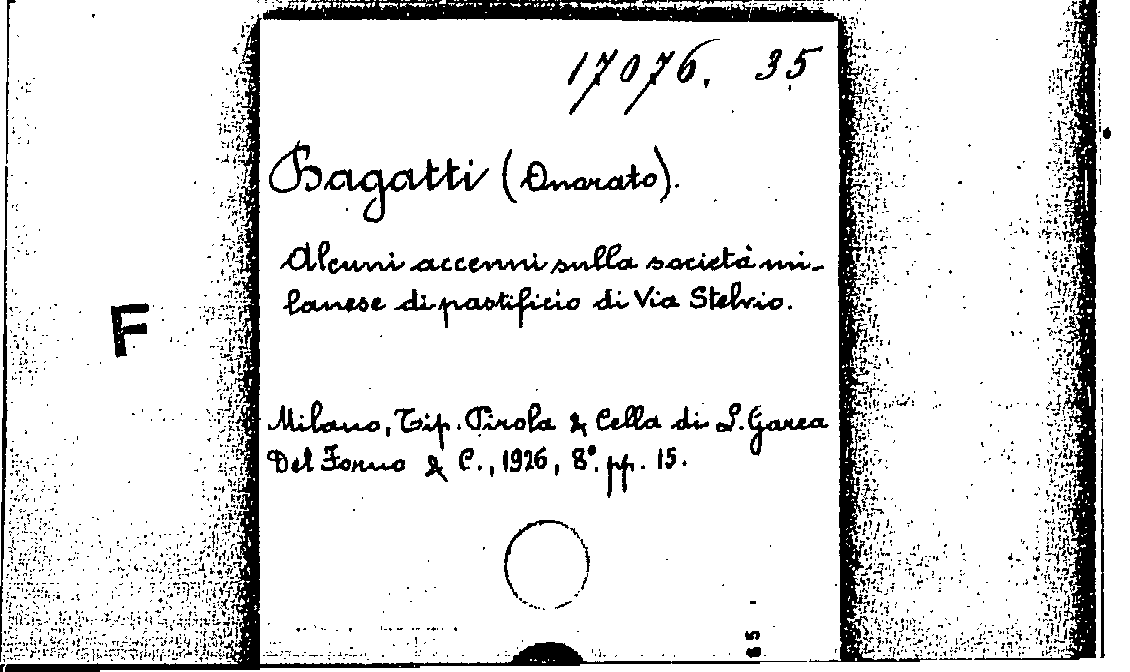 17076. 35
Bagatti (Onorato).
Alcuni accenni sulla società mi-
lanese di pastificio di Via Stelvio.
F
Milano, Tip. Pirola & Cella di S. Garea
Del Forno & C., 1926, 8°. pp. 15.
65